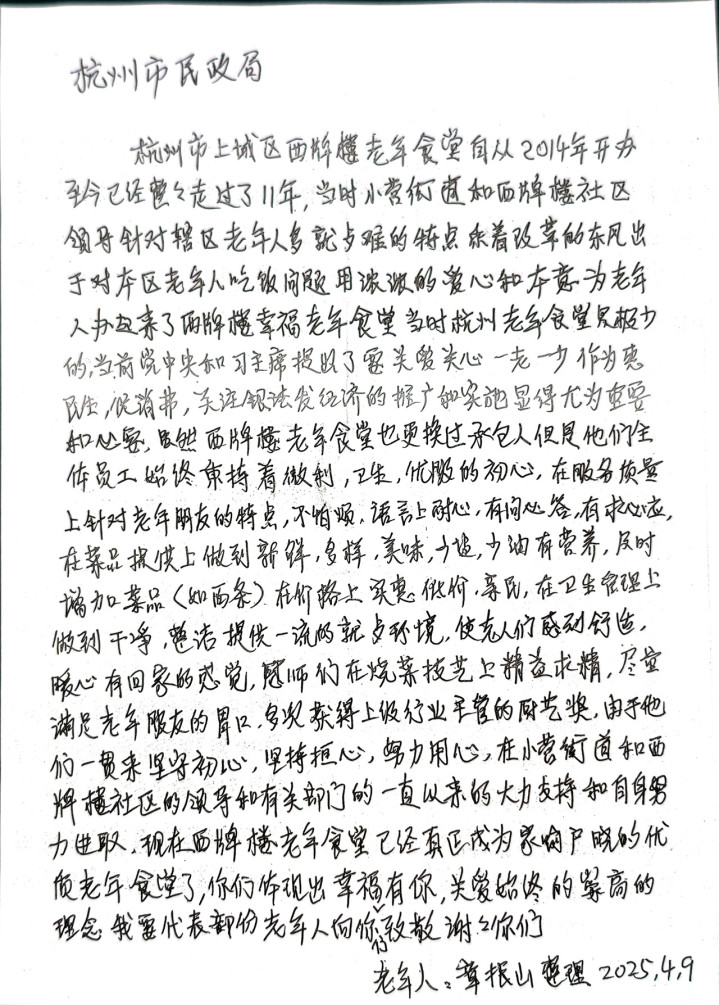 杭州市民政局
杭州市上城区西牌楼老年食堂自从2014年开办
至今已经整々走过了11年,当时小营街道和西牌楼社区
领导针对辖区老年人多就歺难的特点乘着改革的东风出
于对本区老年人吃饭问题用浓浓的爱心和本意为老年
人办起来了西牌楼幸福老年食堂当时杭州老年食堂是极少
的,当前党中央和习主席提出了要关爱关心一老一少作为惠
民生,促消费,关注银法发经济的推广和实施显得尤为重要
和必要,虽然西牌楼老年食堂也更换过承包人但是他们全
体员工始终秉持着微利,卫生,优服的初心,在服务质量
上针对老年朋友的特点,不怕烦,语言上耐心,有问必答,有求必应,
在菜品提供上做到新鲜,多样,美味,少盐,少油有营养,及时
增加菜品(如面条)在价格上实惠低价,亲民,在卫生管理上
做到干净,整洁提供一流的就歺环境,使老人们感到舒适,
暖心有回家的感觉,厨师们在烧菜技艺上精益求精,尽量
满足老年朋友的胃口,多次获得上级行业主管的厨艺奖,由于他
们一贯来坚守初心,坚持恒心,努力用心,在小营街道和西
牌楼社区的领导和有关部门的一直以来的大力支持和自身努
力进取,现在西牌楼老年食堂已经真正成为家喻户晓的优
质老年食堂了,你们体现出幸福有你,关爱始终的崇高的
理念我要代表部份老年人向你们致敬谢々你们
老年人:章根山整理2025,4,9